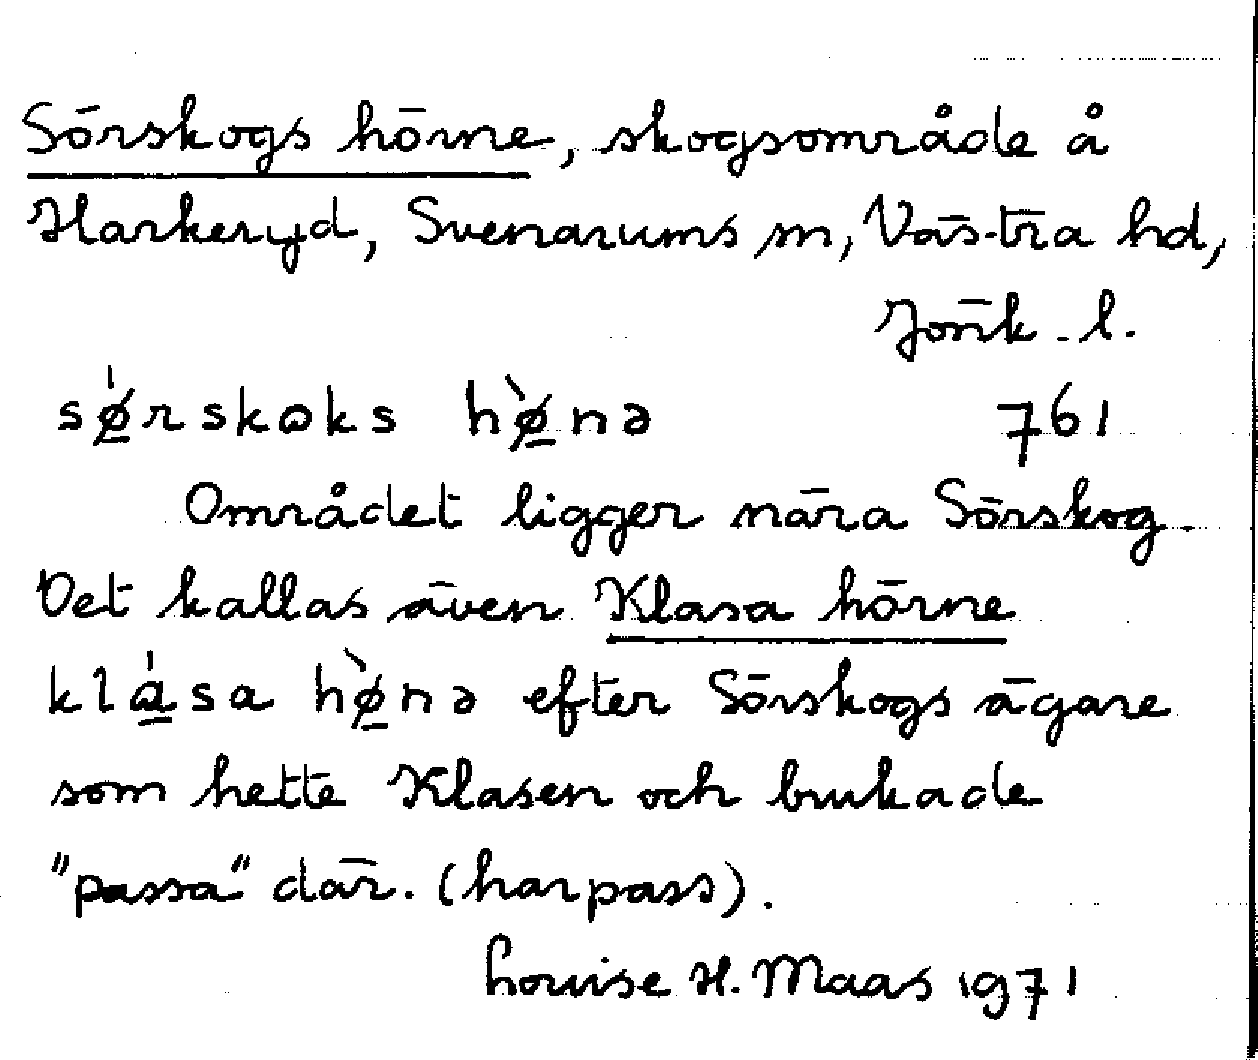 Sörskogs hörne, skogsområde å
Harkeryd, Svenarums sn, Västra hd,
Jönk. l.
sǿ̲rskɷks hø̲̀nə 761
Området ligger nära Sörskog.
Det kallas även Klasa hörne
klá̲sa hø̲̀nə efter Sörskogs ägare
som hette Klasen och brukade
"passa" där. (harpass).
Louise H. Maas 1971